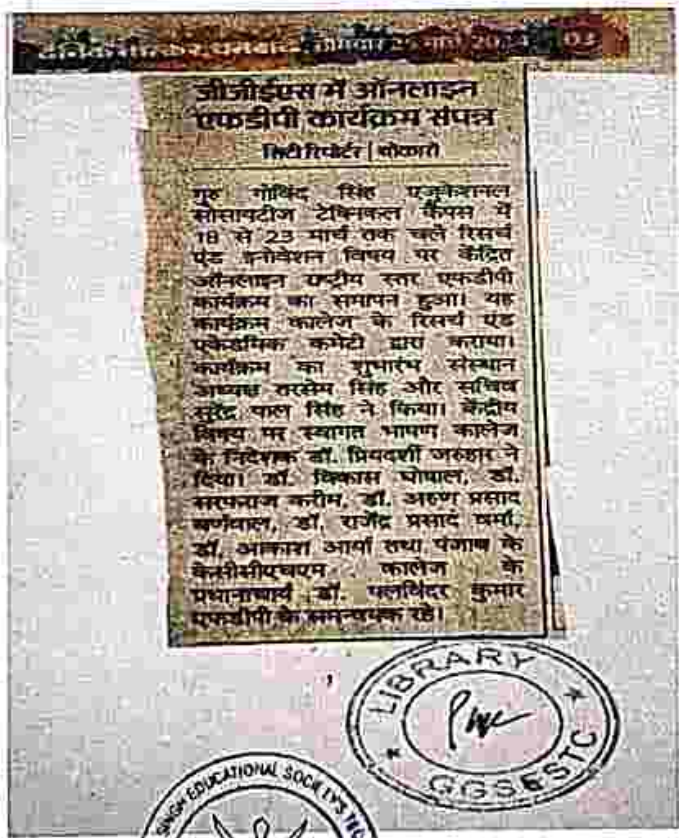 धनबाद, सोमवार 25 मार्च 03
जीजीईएस में ऑनलाइन
एफडीपी कार्यक्रम संपन्न
सिटी रिपोर्टर | बोकारो
गुरु गोविंद सिंह एजुकेशनल
सोसायटीज टेक्निकल कैंपस में
18 से 23 मार्च तक चले रिसर्च
एंड इनोवेशन विषय पर केंद्रित
ऑनलाइन राष्ट्रीय स्तर एफडीपी
कार्यक्रम का समापन हुआ। यह
कार्यक्रम कालेज के रिसर्च एंड
एकेडमिक कमेटी द्वारा कराया।
कार्यक्रम का शुभारंभ संस्थान
अध्यक्ष तरसेम सिंह और सचिव
सुरेंद्र पाल सिंह ने किया। केंद्रीय
विषय पर स्वागत भाषण कालेज
के निदेशक डॉ. प्रियदर्शी जरुहार ने
दिया। डॉ. विकास घोषाल, डॉ.
सरफराज करीम, डॉ. अरुण प्रसाद
बर्णवाल, डॉ. राजेंद्र प्रसाद वर्मा,
डॉ. आकाश आर्या तथा पंजाब के
केसीसीएचएम कालेज के
प्रधानाचार्य डॉ. पलविंदर कुमार
एफडीपी के समन्वयक रहे।
LIBRARY
GGSESTC
SINGH EDUCATIONAL SOCIETY'S